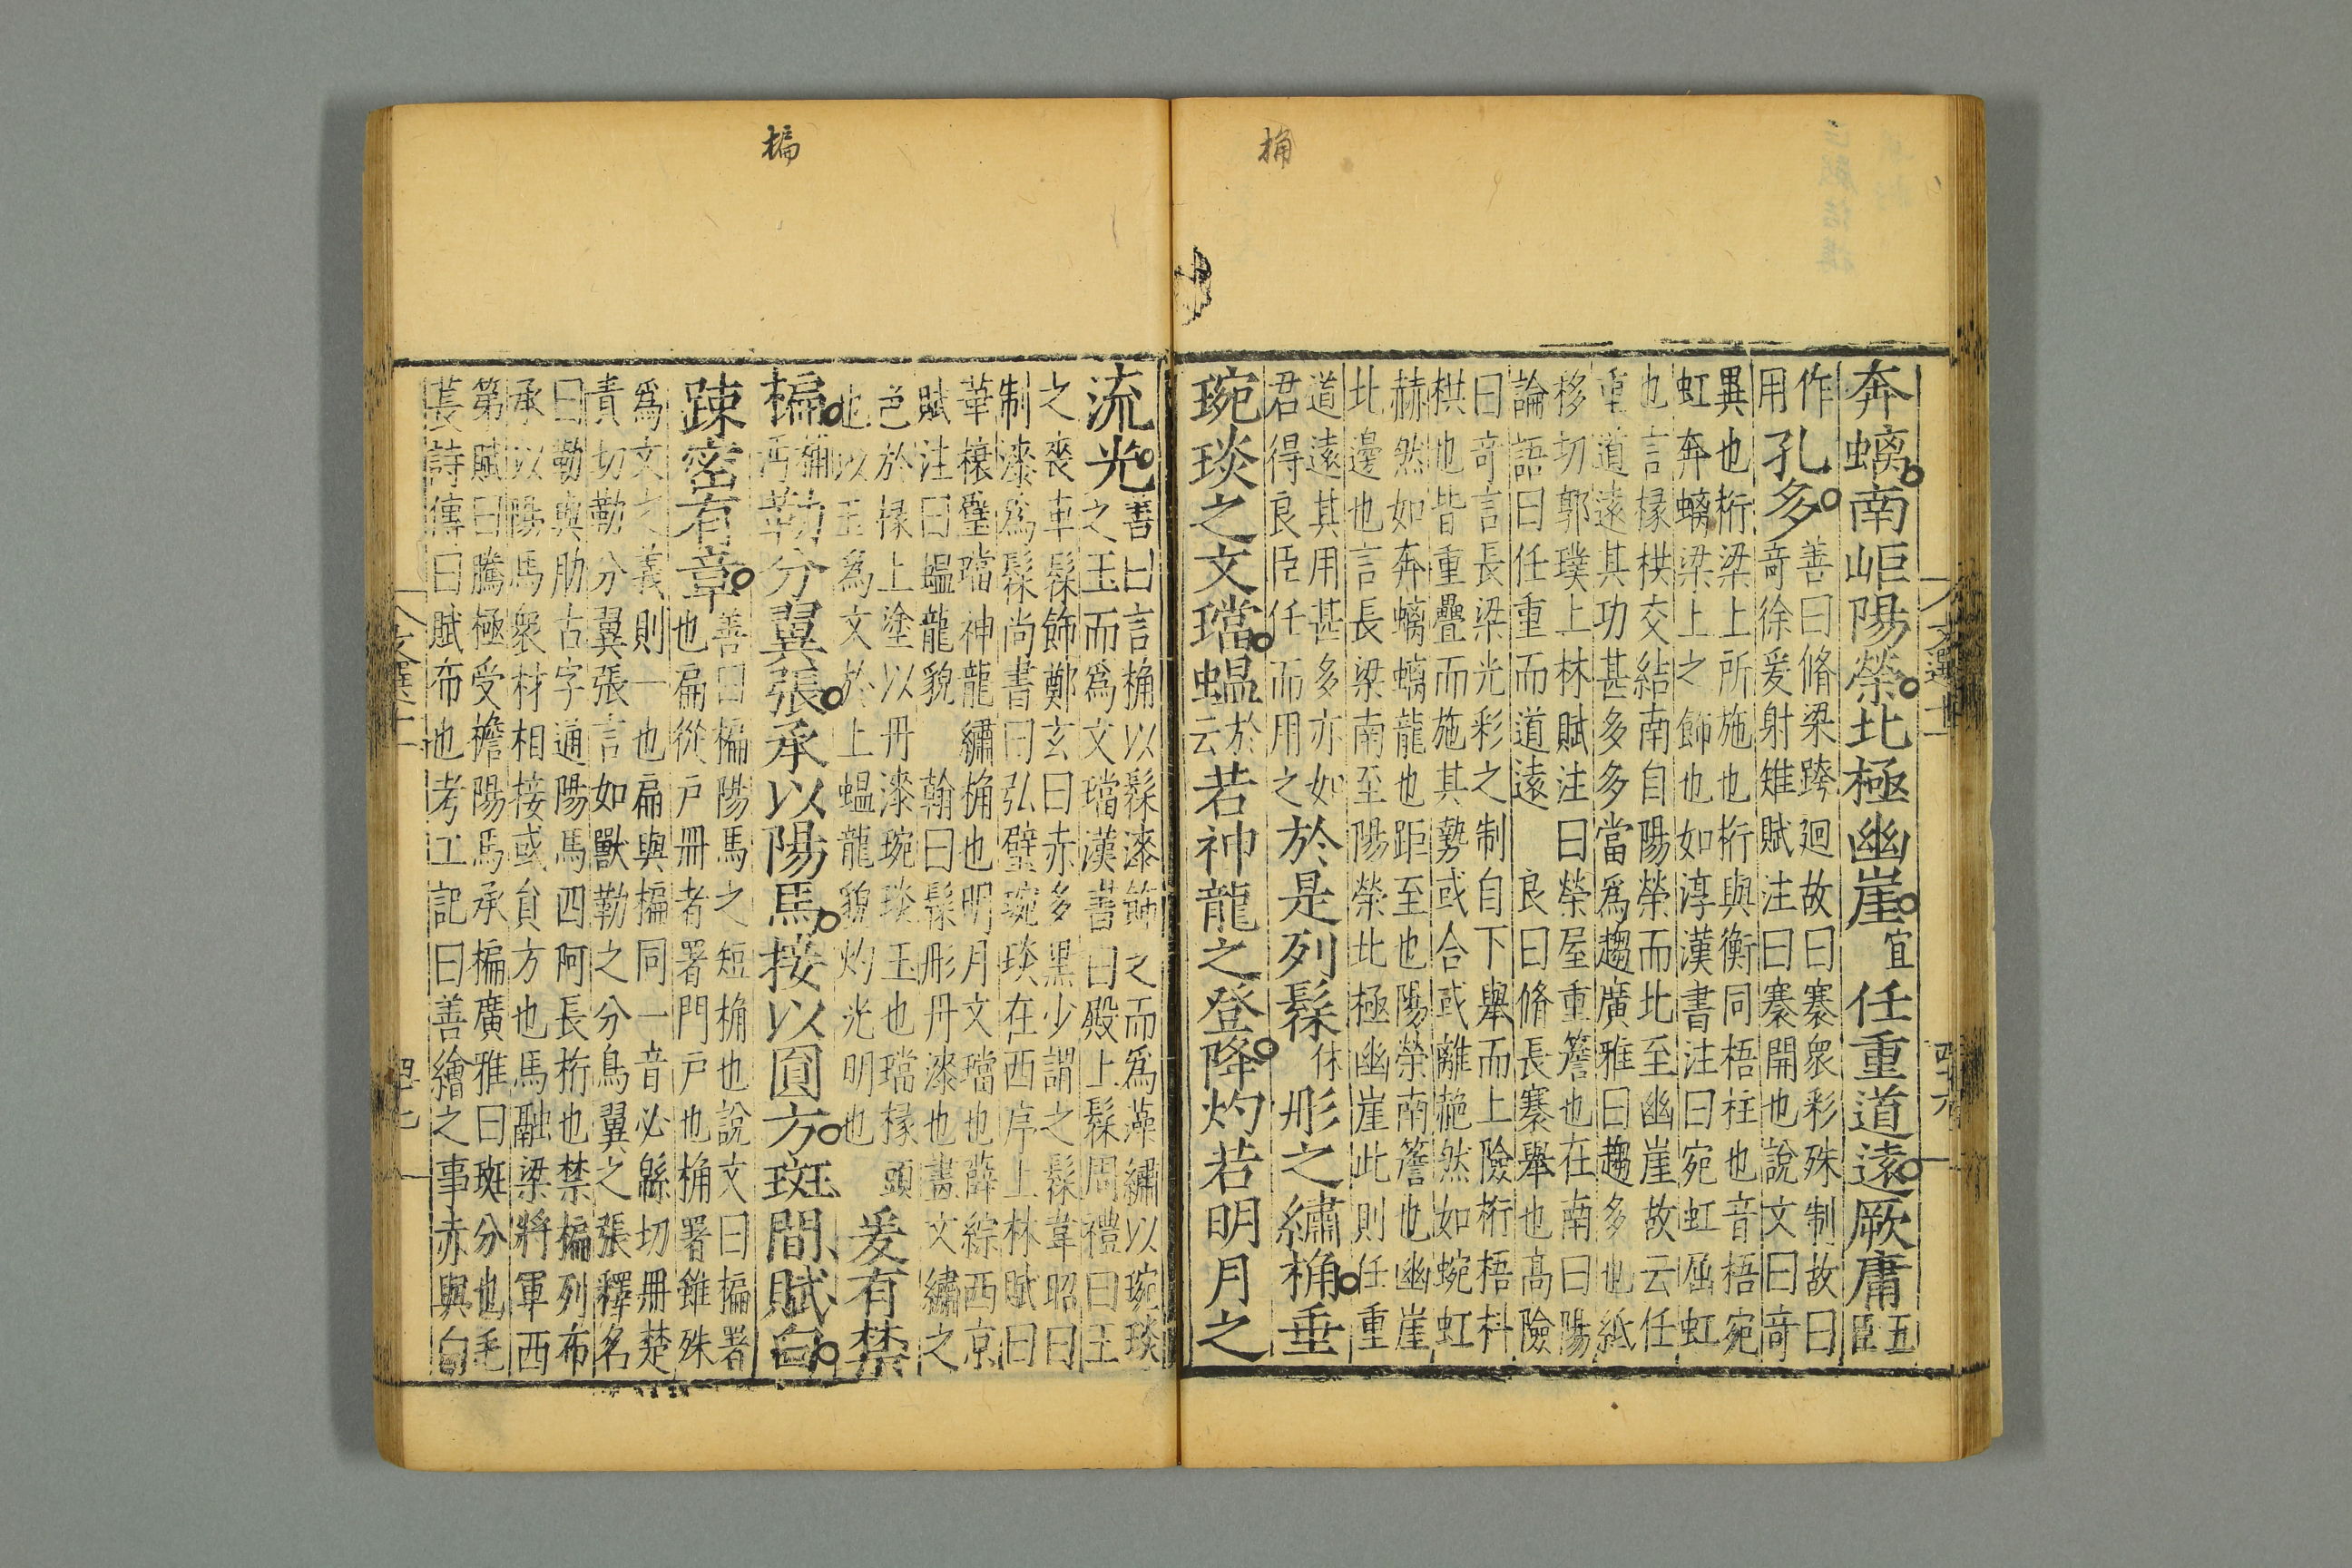 桷
文選十一
四十六
奔螭南岠陽榮北極幽崖宜任重道遠厥庸五臣
作用孔多善曰脩梁跨迥故曰褰衆彩殊制故曰
奇徐爰射雉賦注曰褰開也說文曰奇
異也桁梁上所施也桁與衡同梧柱也音梧宛
虹奔螭梁上之飾也如淳漢書注曰宛虹屈虹
也言椽栱交結南自陽榮而北至幽崖故云任
重道遠其功甚多多當爲趨廣雅曰趨多也紙
移切郭璞上林賦注曰榮屋重簷也在南曰陽
論語曰任重而道遠 良曰脩長褰舉也高險
曰奇言長梁光彩之制自下舉而上險桁梧枓
栱也皆重疊而施其勢或合或離然如蜿虹
赫然如奔螭螭龍也距至也陽榮南簷也幽崖
北邊也言長梁南至陽榮北極幽崖此則任重
道遠其用甚多亦如
君得良臣任而用之於是列髹休彤之繡桷垂
琬琰之文璫蝹於云若神龍之登降灼若明月之
楄
流光善曰言桷以髹漆飾之而爲藻繡以琬琰
之玉而爲文璫漢書曰殿上髹周禮曰王
之喪車髹飾鄭玄曰赤多黑少謂之髹韋昭曰
制漆爲髹尚書曰弘璧琬琰在西序上林賦曰
華榱璧璫神龍 繡桷也明月文璫也薛綜西京
賦注曰蝹龍貌 翰曰髹彤丹漆也畫文繡之
色於椽上塗以丹漆琬琰玉也璫椽頭
也以玉爲文於上蝹龍貌灼光明也爰有禁
楄楄丏勒分翼張承以陽馬接以圓方斑間賦白
踈密有章善曰楄陽馬之短桷也說文曰楄署
也扁從戶冊者署門戶也桷署雖殊
爲文之義則一也扁與楄同一音必緜切冊楚
責切勒分翼張言如獸勒之分鳥翼之張釋名
曰勒與肋古字通陽馬四阿長桁也禁楄列布
承以陽馬衆材相接或負方也馬融梁將軍西
第賦曰騰極受檐陽馬承楄廣雅曰斑分也毛
萇詩傳曰賦布也考工記曰善繪之事赤與白
文選十一
四十七